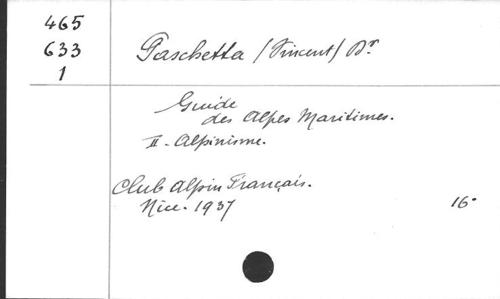 465
633
1
Paschetta /Vincent/ Dr
Guide
des Alpes Maritimes.
II - Alpinisme.
Club Alpin Français.
Nice. 1937
16°